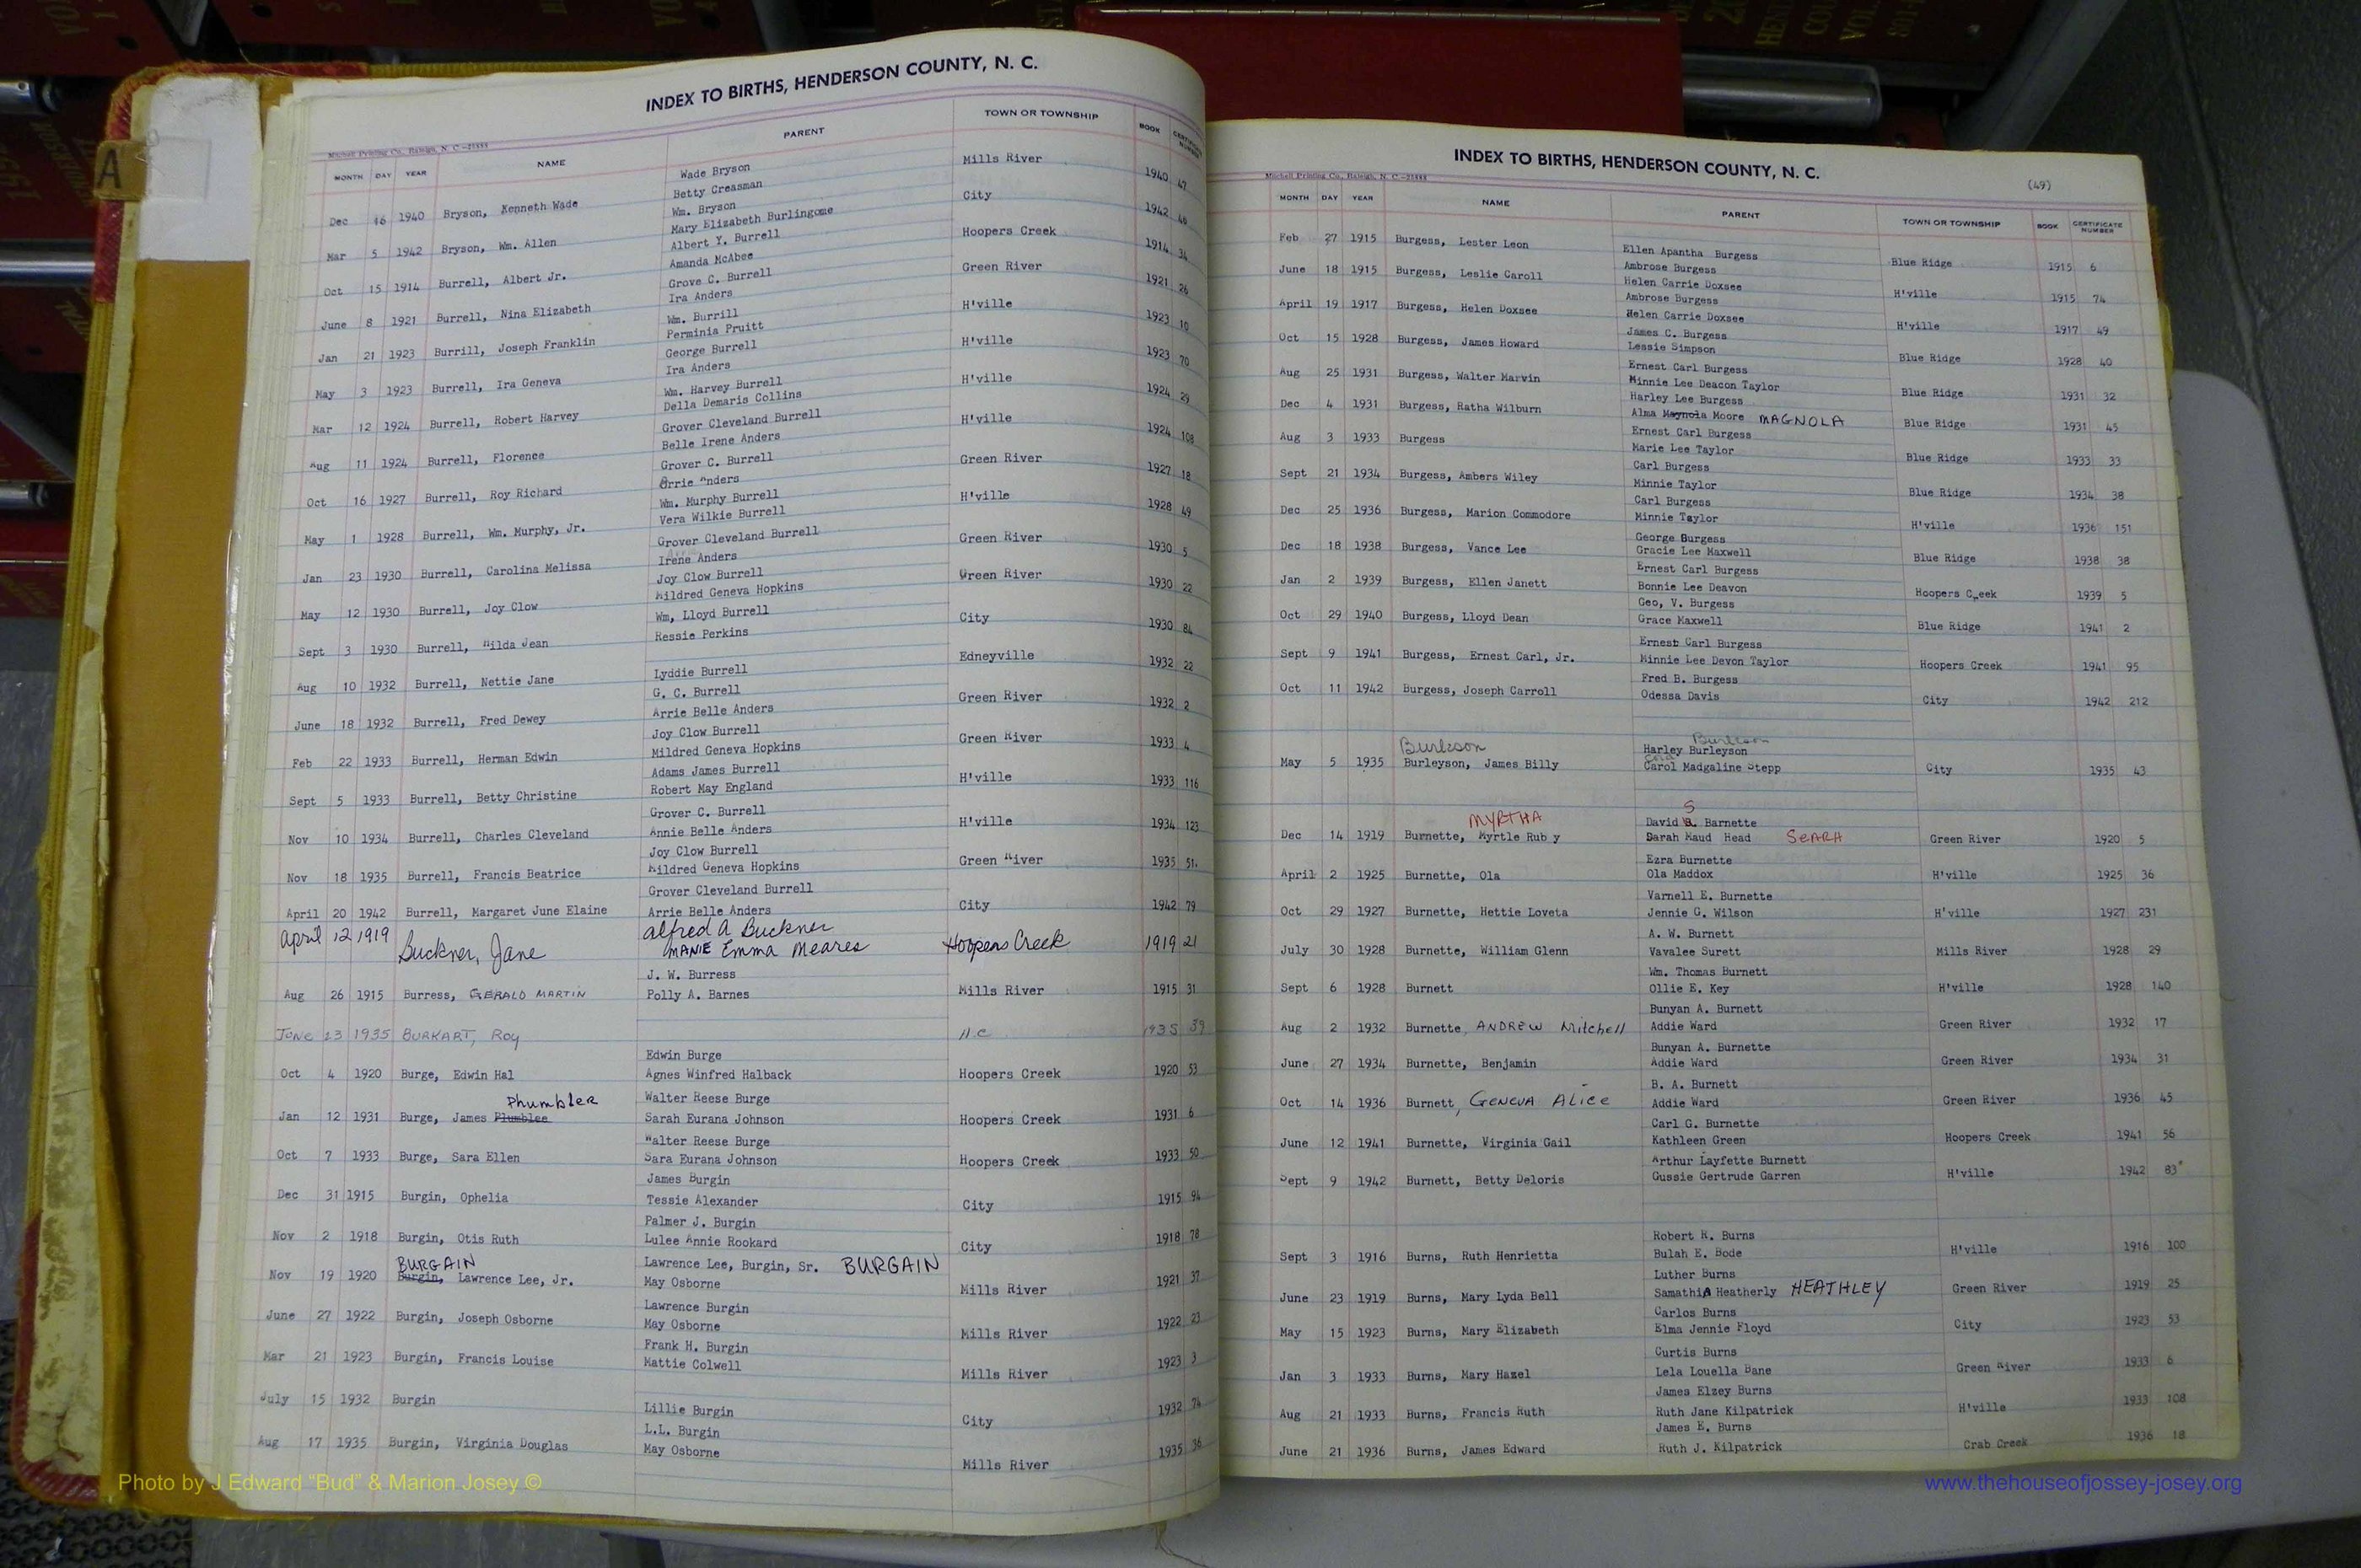 INDEX TO BIRTHS, HENDERSON COUNTY, N. C.
Mitchell Printing Co., Raleigh, N. C.—25885
MONTH DAY YEAR NAME PARENT TOWN OR TOWNSHIP BOOK CERTIFICATE NUMBER
Wade Bryson Mills River
Dec 16 1940 Bryson, Kenneth Wade Betty Creasman 1940 47
Wm. Bryson City
Mar 5 1942 Bryson, Wm. Allen Mary Elizabeth Burlingome 1942 46
Albert Y. Burrell Hoopers Creek
Oct 15 1914 Burrell, Albert Jr. Amanda McAbee 1914 34
Grove C. Burrell Green River
June 8 1921 Burrell, Nina Elizabeth Ira Anders 1921 26
Wm. Burrill H'ville
Jan 21 1923 Burrill, Joseph Franklin Perminia Pruitt 1923 10
George Burrell H'ville
May 3 1923 Burrell, Ira Geneva Ira Anders 1923 70
Wm. Harvey Burrell H'ville
Mar 12 1924 Burrell, Robert Harvey Della Demaris Collins 1924 29
Grover Cleveland Burrell H'ville
Aug 11 1924 Burrell, Florence Belle Irene Anders 1924 108
Grover C. Burrell Green River
Oct 16 1927 Burrell, Roy Richard Orrie Anders 1927 18
Wm. Murphy Burrell H'ville
May 1 1928 Burrell, Wm. Murphy, Jr. Vera Wilkie Burrell 1928 49
Grover Cleveland Burrell Green River
Jan 23 1930 Burrell, Carolina Melissa Irene Anders 1930 5
Joy Clow Burrell Green River
May 12 1930 Burrell, Joy Clow Mildred Geneva Hopkins 1930 22
Wm, Lloyd Burrell City
Sept 3 1930 Burrell, Hilda Jean Ressie Perkins 1930 84
Edneyville
Aug 10 1932 Burrell, Nettie Jane Lyddie Burrell 1932 22
G. C. Burrell Green River
June 18 1932 Burrell, Fred Dewey Arrie Belle Anders 1932 2
Joy Clow Burrell Green River
Feb 22 1933 Burrell, Herman Edwin Mildred Geneva Hopkins 1933 4
Adams James Burrell H'ville
Sept 5 1933 Burrell, Betty Christine Robert May England 1933 116
Grover C. Burrell H'ville
Nov 10 1934 Burrell, Charles Cleveland Annie Belle Anders 1934 123
Joy Clow Burrell Green River
Nov 18 1935 Burrell, Francis Beatrice Mildred Geneva Hopkins 1935 51.
Grover Cleveland Burrell
April 20 1942 Burrell, Margaret June Elaine Arrie Belle Anders City 1942 79
alfred A Buckner
april 12 1919 Buckner, Jane MANIE Emma Meares Hoopers Creek 1919 21
J. W. Burress
Aug 26 1915 Burress, GERALD MARTIN Polly A. Barnes Mills River 1915 31
JUNE 13 1935 BURKART, Roy H.C 1935 39
Edwin Burge
Oct 4 1920 Burge, Edwin Hal Agnes Winfred Halback Hoopers Creek 1920 53
Phumbler Walter Reese Burge
Jan 12 1931 Burge, James Plumblee Sarah Eurana Johnson Hoopers Creek 1931 6
Walter Reese Burge
Oct 7 1933 Burge, Sara Ellen Sara Eurana Johnson Hoopers Creek 1933 50
James Burgin
Dec 31 1915 Burgin, Ophelia Tessie Alexander City 1915 94
Palmer J. Burgin
Nov 2 1918 Burgin, Otis Ruth Lulee Annie Rookard City 1918 78
BURGAIN Lawrence Lee, Burgin, Sr. BURGAIN
Nov 19 1920 Burgin, Lawrence Lee, Jr. May Osborne Mills River 1921 37
Lawrence Burgin
June 27 1922 Burgin, Joseph Osborne May Osborne Mills River 1922 23
Frank H. Burgin
Mar 21 1923 Burgin, Francis Louise Mattie Colwell Mills River 1923 3
July 15 1932 Burgin Lillie Burgin City 1932 74
L.L. Burgin
Aug 17 1935 Burgin, Virginia Douglas May Osborne Mills River 1935 36
INDEX TO BIRTHS, HENDERSON COUNTY, N. C.
(49)
Mitchell Printing Co., Raleigh, N. C.—25885
MONTH DAY YEAR NAME PARENT TOWN OR TOWNSHIP BOOK CERTIFICATE NUMBER
Feb 27 1915 Burgess, Lester Leon Ellen Apantha Burgess Blue Ridge 1915 6
Ambrose Burgess
June 18 1915 Burgess, Leslie Caroll Helen Carrie Doxsee H'ville 1915 74
Ambrose Burgess
April 19 1917 Burgess, Helen Doxsee Helen Carrie Doxsee H'ville 1917 49
James C. Burgess
Oct 15 1928 Burgess, James Howard Lessie Simpson Blue Ridge 1928 40
Ernest Carl Burgess
Aug 25 1931 Burgess, Walter Marvin Minnie Lee Deacon Taylor Blue Ridge 1931 32
Harley Lee Burgess
Dec 4 1931 Burgess, Ratha Wilburn Alma Maynola Moore MAGNOLA Blue Ridge 1931 45
Ernest Carl Burgess
Aug 3 1933 Burgess Marie Lee Taylor Blue Ridge 1933 33
Carl Burgess
Sept 21 1934 Burgess, Ambers Wiley Minnie Taylor Blue Ridge 1934 38
Carl Burgess
Dec 25 1936 Burgess, Marion Commodore Minnie Taylor H'ville 1936 151
George Burgess
Dec 18 1938 Burgess, Vance Lee Gracie Lee Maxwell Blue Ridge 1938 38
Ernest Carl Burgess
Jan 2 1939 Burgess, Ellen Janett Bonnie Lee Deavon Hoopers Creek 1939 5
Geo, V. Burgess
Oct 29 1940 Burgess, Lloyd Dean Grace Maxwell Blue Ridge 1941 2
Ernest Carl Burgess
Sept 9 1941 Burgess, Ernest Carl, Jr. Minnie Lee Devon Taylor Hoopers Creek 1941 95
Fred B. Burgess
Oct 11 1942 Burgess, Joseph Carroll Odessa Davis City 1942 212
Burleson Burleson
Harley Burleyson
May 5 1935 Burleyson, James Billy Carol Madgaline Stepp City 1935 43
S
MYRTHA David B. Barnette
Dec 14 1919 Burnette, Myrtle Ruby Sarah Maud Head SEARA Green River 1920 5
Ezra Burnette
April 2 1925 Burnette, Ola Ola Maddox H'ville 1925 36
Varnell E. Burnette
Oct 29 1927 Burnette, Hettie Loveta Jennie G. Wilson H'ville 1927 231
A. W. Burnett
July 30 1928 Burnette, William Glenn Vavalee Surett Mills River 1928 29
Wm. Thomas Burnett
Sept 6 1928 Burnett Ollie E. Key H'ville 1928 140
Bunyan A. Burnett
Aug 2 1932 Burnette, ANDREW Mitchell Addie Ward Green River 1932 17
Bunyan A. Burnette
June 27 1934 Burnette, Benjamin Addie Ward Green River 1934 31
B. A. Burnett
Oct 14 1936 Burnett, GENEVA Alice Addie Ward Green River 1936 45
Carl G. Burnette
June 12 1941 Burnette, Virginia Gail Kathleen Green Hoopers Creek 1941 56
Arthur Layfette Burnett
Sept 9 1942 Burnett, Betty Deloris Gussie Gertrude Garren H'ville 1942 83
Robert R. Burns
Sept 3 1916 Burns, Ruth Henrietta Bulah E. Bode H'ville 1916 100
Luther Burns
June 23 1919 Burns, Mary Lyda Bell SamathiA Heatherly HEATHLEY Green River 1919 25
Carlos Burns
May 15 1923 Burns, Mary Elizabeth Elma Jennie Floyd City 1923 53
Curtis Burns
Jan 3 1933 Burns, Mary Hazel Lela Louella Bane Green River 1933 6
James Elzey Burns
Aug 21 1933 Burns, Francis Ruth Ruth Jane Kilpatrick H'ville 1933 108
James E. Burns
June 21 1936 Burns, James Edward Ruth J. Kilpatrick Crab Creek 1936 18
Photo by J Edward “Bud” & Marion Josey ©
www.thehouseofjossey-josey.org